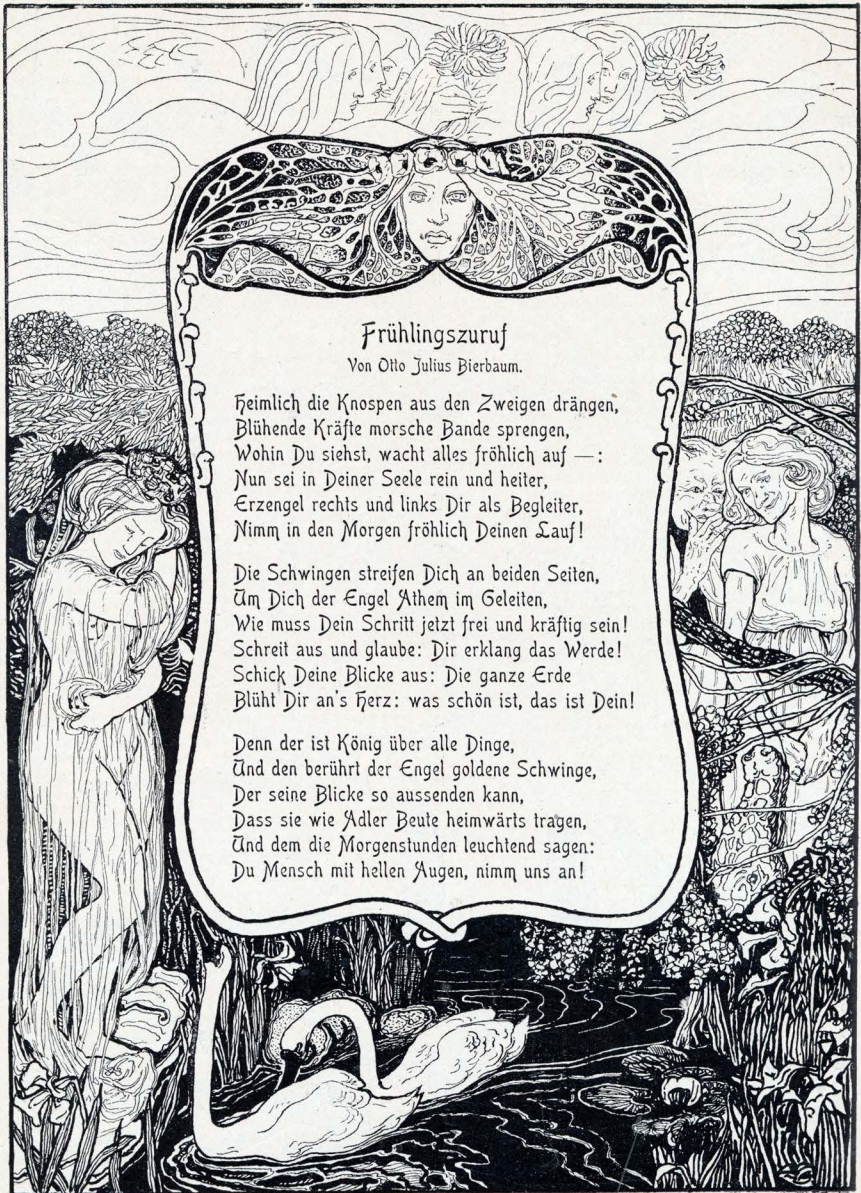 Frühlingszuruf
Von Otto Julius Bierbaum.
Heimlich die Knospen aus den Zweigen drängen,
Blühende Kräfte morsche Bande sprengen,
Wohin Du siehst, wacht alles fröhlich auf —:
Nun sei in Deiner Seele rein und heiter,
Erzengel rechts und links Dir als Begleiter,
Nimm in den Morgen fröhlich Deinen Lauf!
Die Schwingen streifen Dich an beiden Seiten,
Um Dich der Engel Athem im Geleiten,
Wie muss Dein Schritt jetzt frei und kräftig sein!
Schreit aus und glaube: Dir erklang das Werde!
Schick Deine Blicke aus: Die ganze Erde
Blüht Dir an's Herz: was schön ist, das ist Dein!
Denn der ist König über alle Dinge,
Und den berührt der Engel goldene Schwinge,
Der seine Blicke so aussenden kann,
Dass sie wie Adler Beute heimwärts tragen,
Und dem die Morgenstunden leuchtend sagen:
Du Mensch mit hellen Augen, nimm uns an!